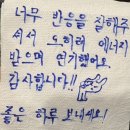 너무 반응을 잘해주
셔서 도히려 에너지
받으며 연기했어요.
감사합니다!!
좋은 하루 보내세요!